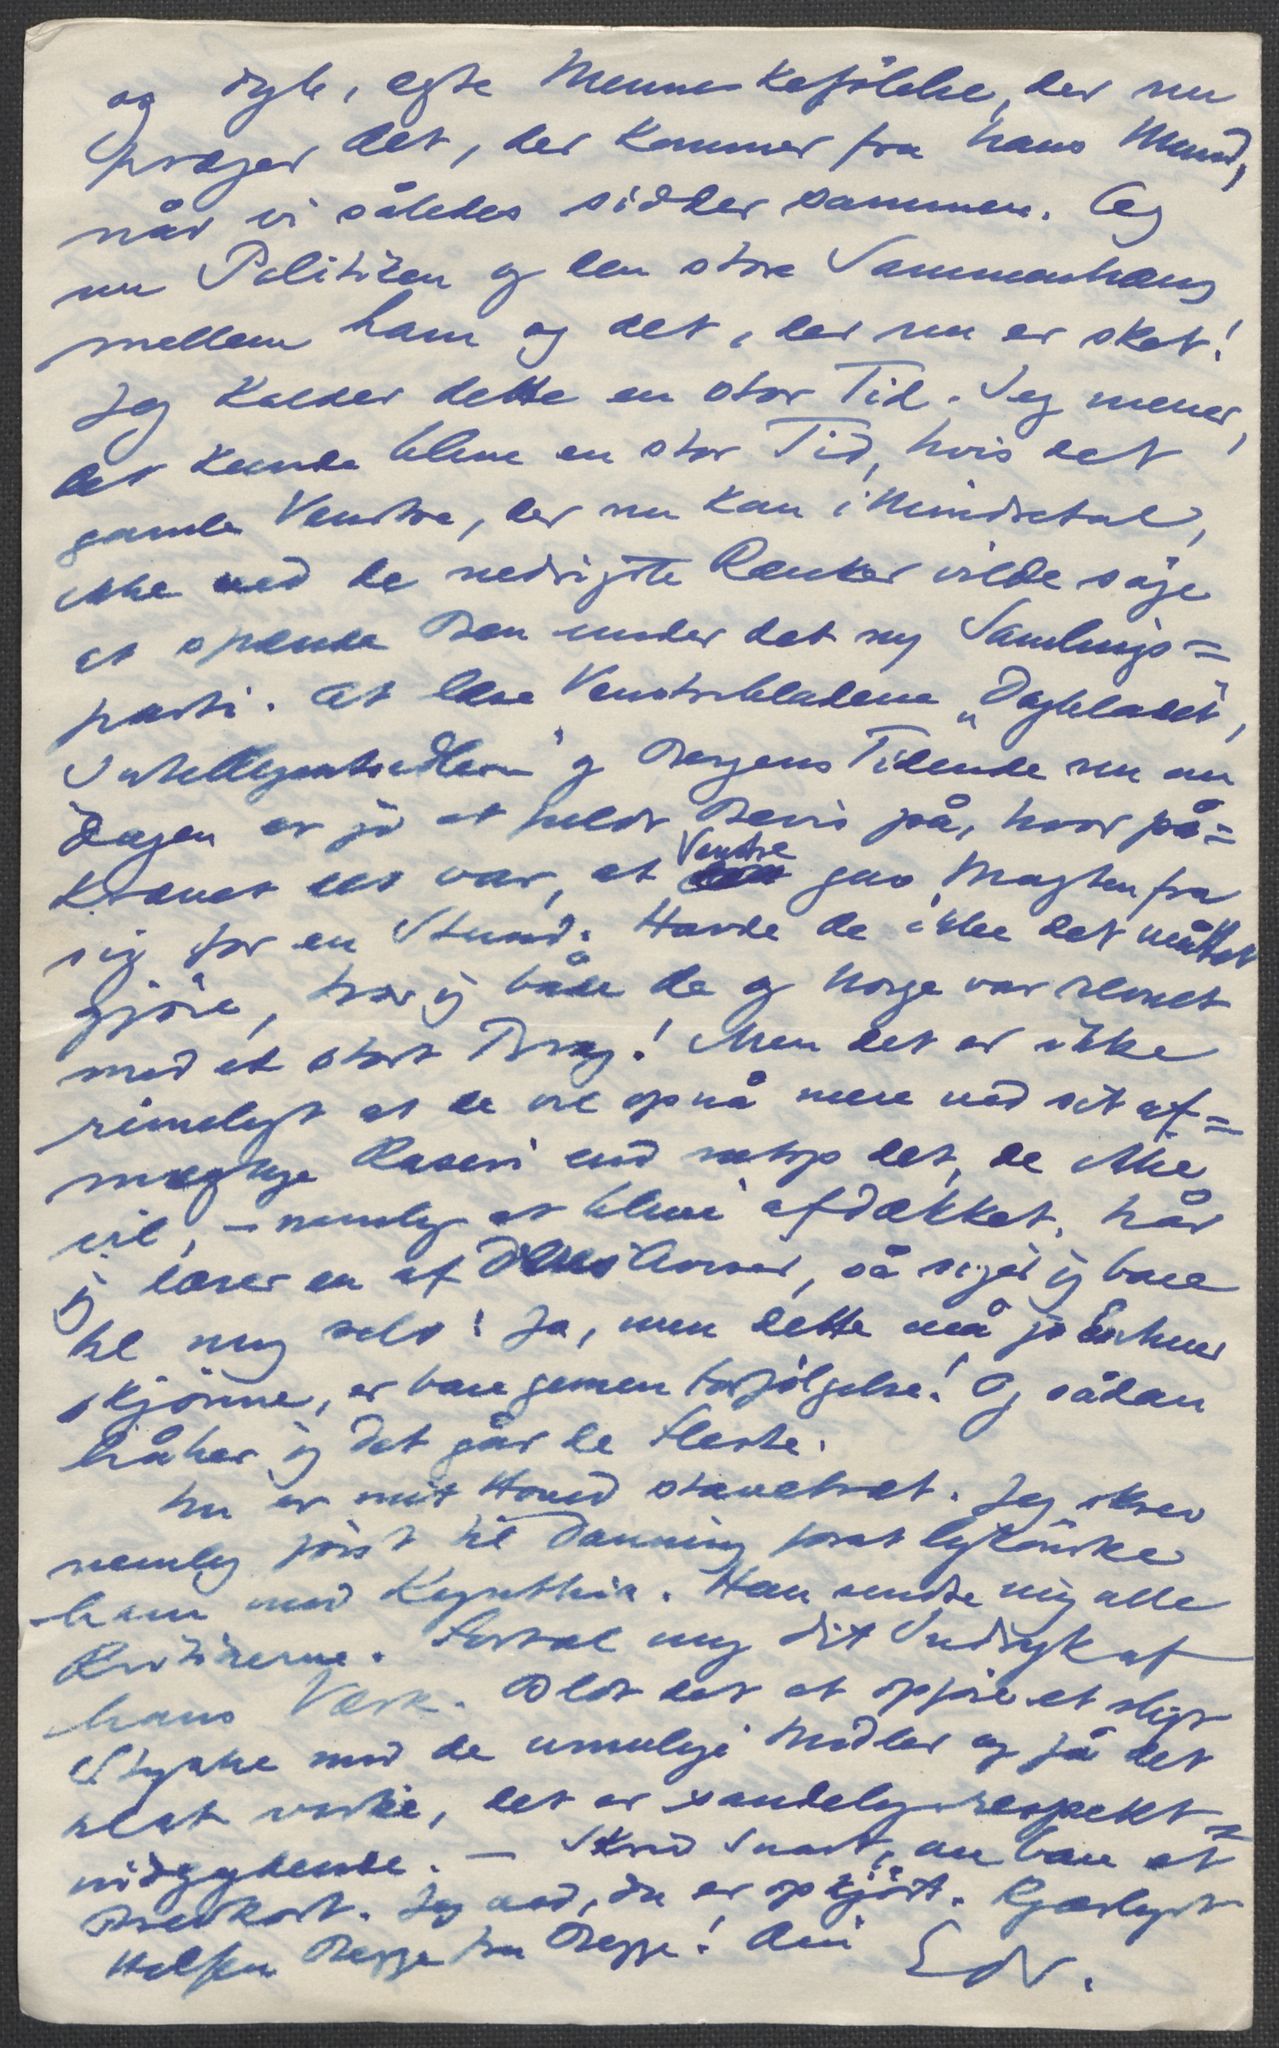 og dybe, egte Menneskefølelse, der nu
præger det, der kommer fra hans Mund,
når vi således sidder sammen. Og
nu Politiken og den store Sammenhæng
mellem ham og det, der nu er sket!
Jeg kalder dette en stor Tid. Jeg mener,
det kunde blive en stor Tid, hvis det
gamle Venstre, der nu kom i Mindretal,
ikke ved de nedrigste Rænker vilde søge
at spænde Ben under det ny Samlings=
parti. At læse Venstrebladene „Dagbladet",
Intelligentssedlerne" og Bergens Tidende nu om
Dagen er jo at fulde Bevis på, hvor på=
krævet det var, at Venstre gav Magten fra
sig for en Stund. Havde de ikke det måttet
gjøre, tror jeg både de og Norge var revnet
med et stort Brag! Men det er ikke
rimeligt at de vil opnå mere ved sit af=
mægtige Raseri end netop det, de ikke
vil, – nemlig at blive afdækket. Når
jeg læser en af disse Aviser, så siger jeg bare
til mig selv: Ja, men dette må jo Enhver
skjønne, er bare gemen Forfølgelse! Og sådan
håber jeg det går de Fleste.
Nu er mit Hoved staurtræt. Jeg skrev
nemlig først til Danning forat lykønske
ham med Kynthia. Han sendte mig alle
Kritikerne. Fortæl mig dit Indtryk af
hans Værk. Blot det at opføre et sligt
Stykke med de umulige Midler og få det
til at virke, det er sandelig respekt=
indgydende. – Skriv snart, om bare et
Brevkort. Jeg ved, du er opkjørt. Kjærligst
Hilsen Begge fra Begge! Din Edv.